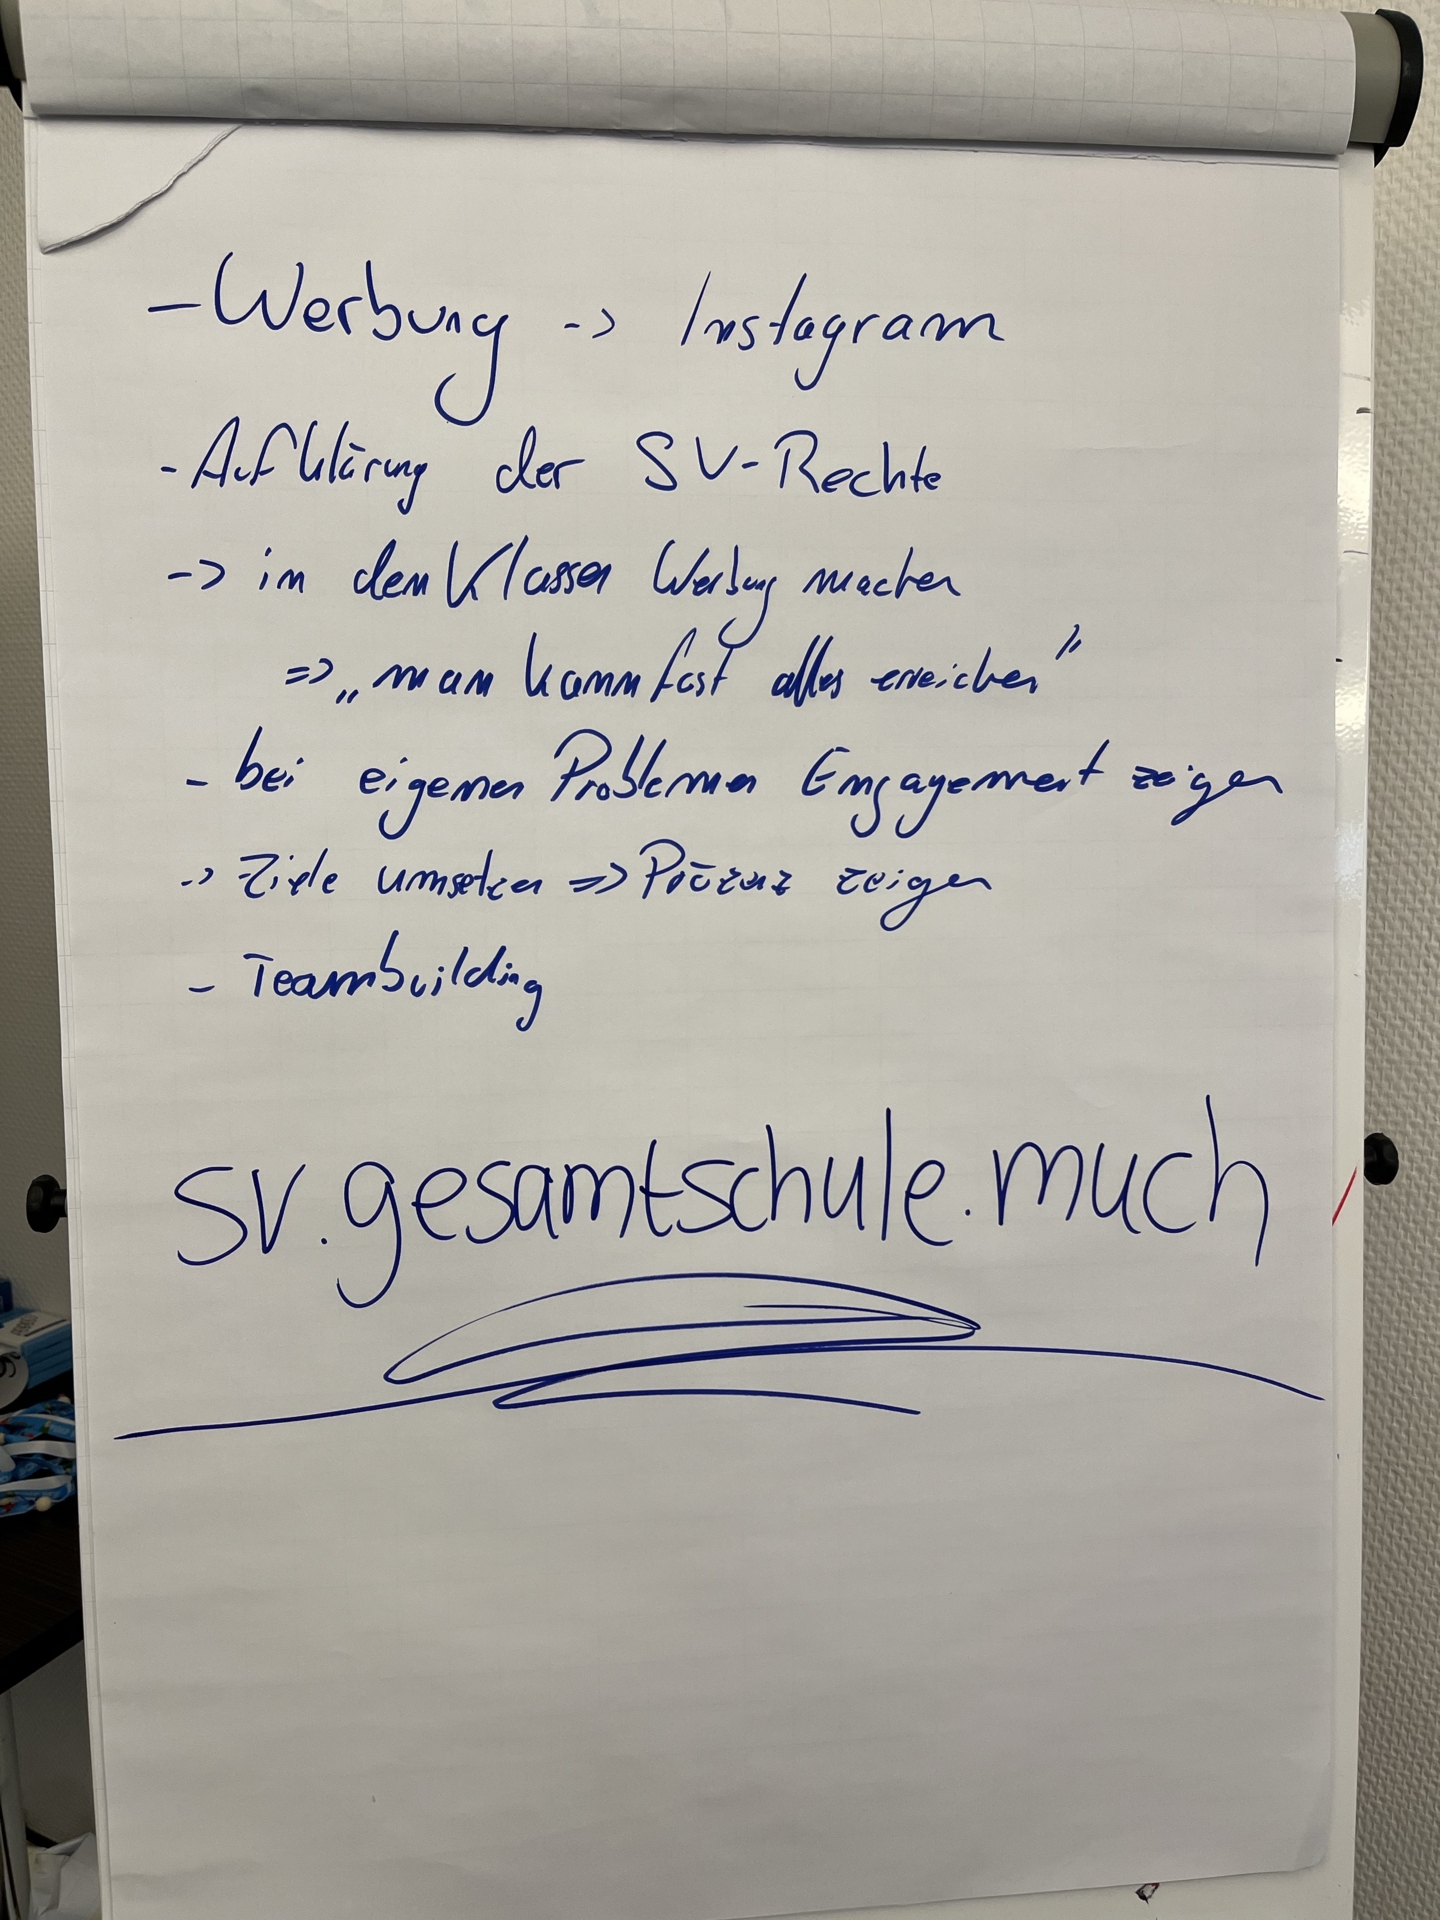 - Werbung -> Instagram
- Aufklärung der SV-Rechte
-> in den Klassen Werbung machen
=> „man kann fast alles erreichen"
- bei eigenen Problemen Engagement zeigen
-> Ziele umsetzen => Präzenz zeigen
- Teambuilding
sv.gesamtschule.much